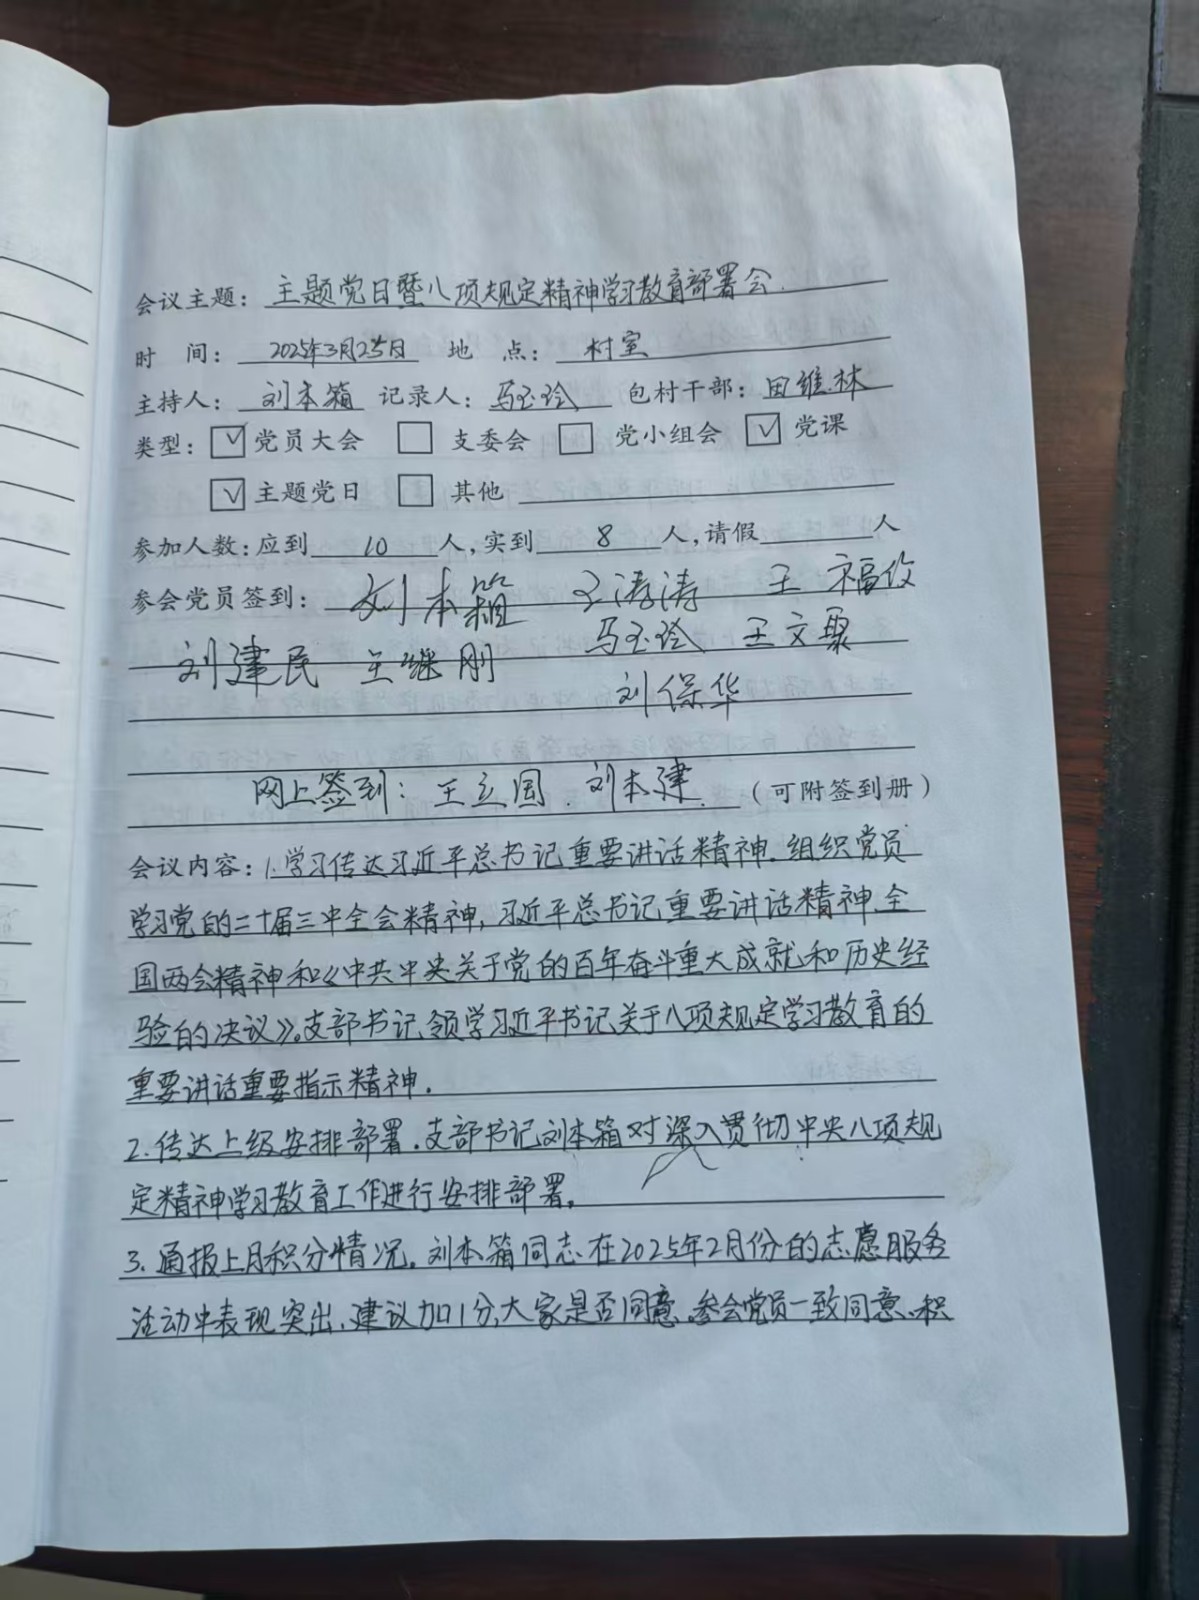 会议主题：主题党日暨八项规定精神学习教育部署会.
时 间：2025年3月25日 地 点：村室
主持人：刘本箱 记录人：马玉玲 包村干部：田维林
类型：☑党员大会 □支委会 □党小组会 ☑党课
☑主题党日 □其他
参加人数：应到10人，实到8人，请假 人
参会党员签到：刘本箱 涛涛 王福
刘建民 王继刚 马玉玲 王文聚
刘保华
网上签到：王立国．刘本建．（可附签到册）
会议内容：1.学习传达习近平总书记重要讲话精神．组织党员
学习党的二十届三中全会精神，习近平总书记重要讲话精神、全
国两会精神和《中共中央关于党的百年奋斗重大成就和历史经
验的决议》。支部书记领学习近平书记关于八项规定学习教育的
重要讲话重要指示精神．
2.传达上级安排部署．支部书记刘本箱对深入贯彻中央八项规
定精神学习教育工作进行安排部署。
3.通报上月积分情况。刘本箱同志在2025年2月份的志愿服务
活动中表现突出，建议加1分，大家是否同意。参会党员一致同意、积